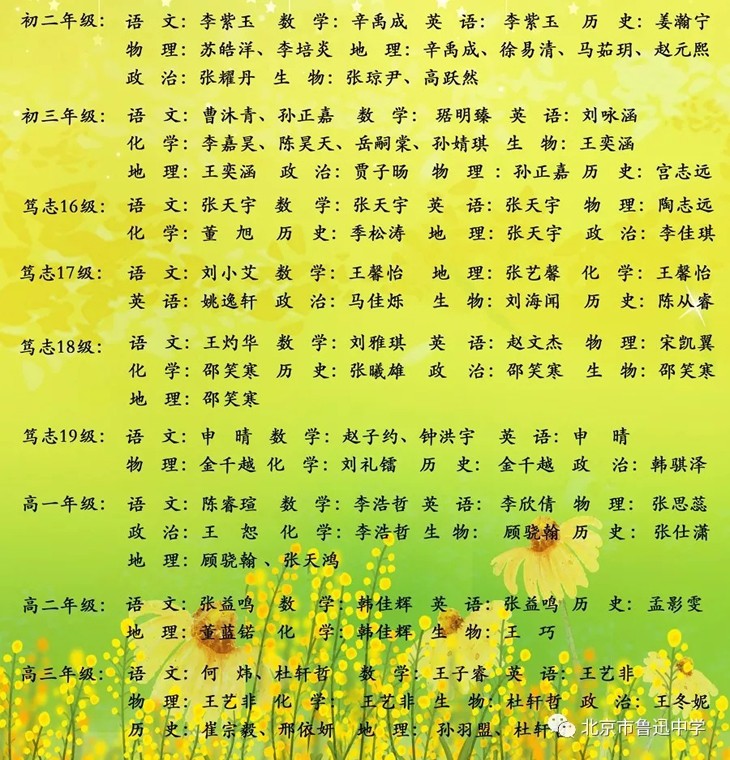 初二年级： 语 文：李紫玉 数 学：辛禹成 英 语：李紫玉 历 史：姜瀚宁
物 理：苏皓洋、李培炎 地 理：辛禹成、徐易清、马茹玥、赵元熙
政 治：张耀丹 生 物：张琼尹、高跃然
初三年级： 语 文：曹沐青、孙正嘉 数 学：琚明臻 英 语：刘咏涵
化 学：李嘉昊、陈昊天、岳嗣棠、孙婧琪 生 物：王奕涵
地 理：王奕涵 政 治：贾子旸 物 理：孙正嘉 历 史：宫志远
笃志16级： 语 文：张天宇 数 学：张天宇 英 语：张天宇 物 理：陶志远
化 学：董 旭 历 史：季松涛 地 理：张天宇 政 治：李佳琪
笃志17级： 语 文：刘小艾 数 学：王馨怡 地 理：张艺馨 化 学：王馨怡
英 语：姚逸轩 政 治：马佳烁 生 物：刘海闻 历 史：陈从睿
笃志18级： 语 文：王灼华 数 学：刘雅琪 英 语：赵文杰 物 理：宋凯翼
化 学：邵笑寒 历 史：张曦雄 政 治：邵笑寒 生 物：邵笑寒
地 理：邵笑寒
笃志19级： 语 文：申 晴 数 学：赵子约、钟洪宇 英 语：申 晴
物 理：金千越 化 学：刘礼镭 历 史：金千越 政 治：韩骐泽
高一年级： 语 文：陈睿瑄 数 学：李浩哲 英 语：李欣倩 物 理：张思蕊
政 治：王 恕 化 学：李浩哲 生 物：顾骁翰 历 史：张仕潇
地 理：顾骁翰、张天鸿
高二年级： 语 文：张益鸣 数 学：韩佳辉 英 语：张益鸣 历 史：孟影雯
地 理：董蓝锘 化 学：韩佳辉 生 物：王 巧
高三年级： 语 文：何 炜、杜轩哲 数 学：王子睿 英 语：王艺非
物 理：王艺非 化 学：王艺非 生 物：杜轩哲 政 治：王冬妮
历 史：崔宗毅、邢依妍 地 理：孙羽盟、杜轩
北京市鲁迅中学